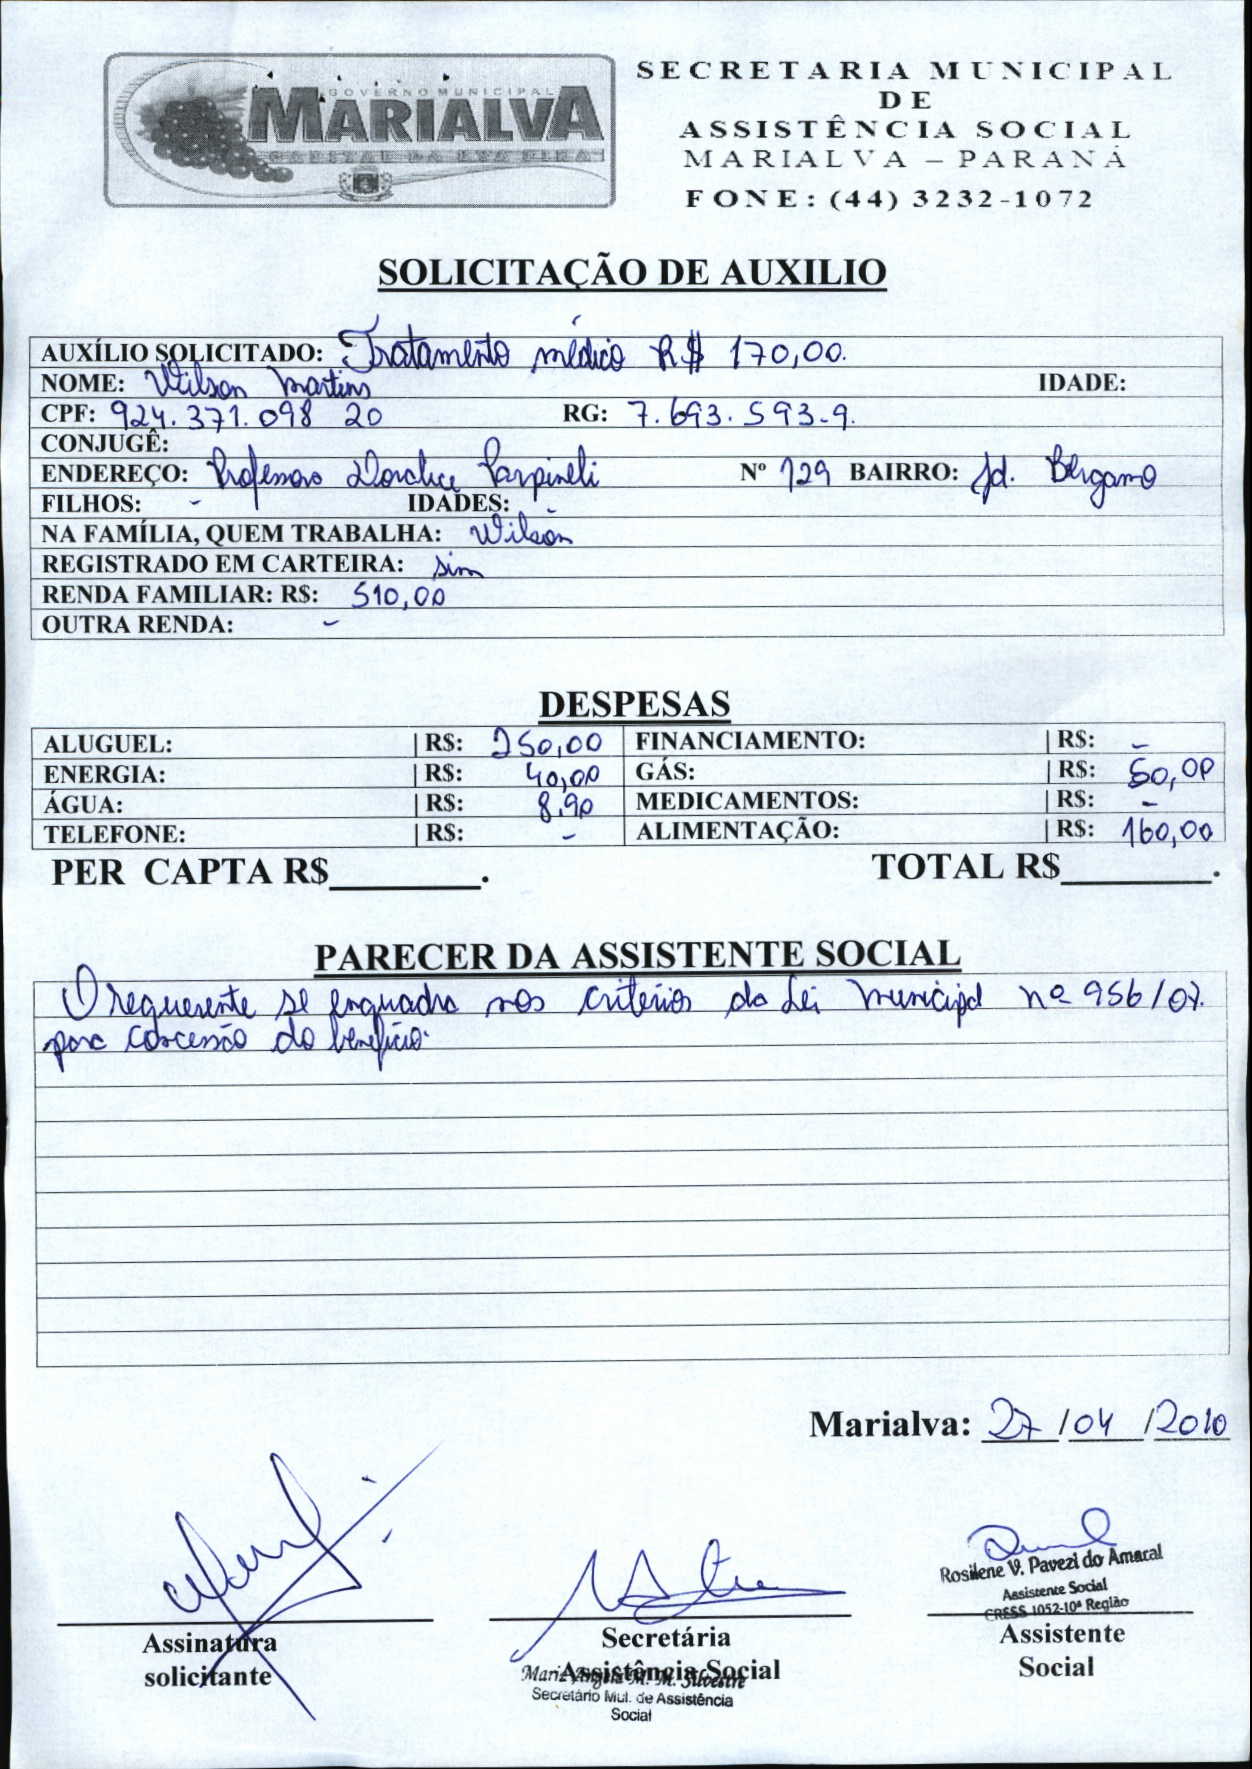 GOVERNO MUNICIPAL
MARIALVA
CAPITAL DA UVA FINA
SECRETARIA MUNICIPAL
DE
ASSISTÊNCIA SOCIAL
MARIALVA – PARANÁ
FONE: (44) 3232-1072
SOLICITAÇÃO DE AUXILIO
AUXÍLIO SOLICITADO: Tratamento médico R$ 170,00.
NOME: Wilson Martins IDADE:
CPF: 924.371.098 20 RG: 7.693.593-9.
CONJUGÊ:
ENDEREÇO: Professora Doralice Parpineli Nº 729 BAIRRO: Jd. Bergamo
FILHOS: - IDADES: -
NA FAMÍLIA, QUEM TRABALHA: Wilson
REGISTRADO EM CARTEIRA: sim
RENDA FAMILIAR: R$: 510,00
OUTRA RENDA: -
DESPESAS
ALUGUEL: | R$: 250,00 FINANCIAMENTO: | R$: -
ENERGIA: | R$: 40,00 GÁS: | R$: 50,00
ÁGUA: | R$: 8,90 MEDICAMENTOS: | R$: -
TELEFONE: | R$: - ALIMENTAÇÃO: | R$: 160,00
PER CAPTA R$________. TOTAL R$________.
PARECER DA ASSISTENTE SOCIAL
O requerente se enquadra nos critérios da Lei Municipal nº 956/07.
para concessão do benefício.
Marialva: 27/04/2010
Rosilene V. Pavezi do Amaral
Assistente Social
CRESS 1052-10ª Região
Assinatura
solicitante
Secretária
Assistência Social
Maria Angela M. M. Silvestre
Secretário Mul. de Assistência
Social
Assistente
Social